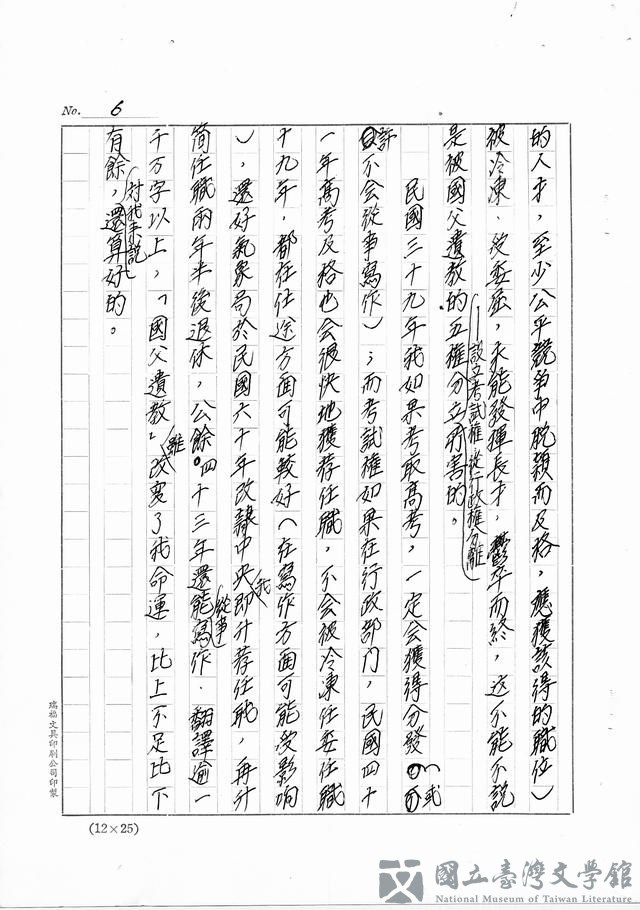 No. 6
的人才，至少公平競爭中脫穎而及格，應獲該得的職位）
被冷凍．受委屈，未能發揮長才，鬱卒而終，这不能不說
是被國父遺教的五權分立—設立考試權從行政權分離—所害的。
民國三十九年我如果考取高考，一定会獲得分發（或
許不会從事寫作）；而考試權如果在行政部门，民國四十
一年高考及格也会很快地獲荐任職，不会被冷凍任委任職
十九年，都在仕途方面可能較好（在寫作方面可能受影响
），還好氣象局於民國六十年改隸中央我即升荐任職，再升
简任職兩年半後退休，公餘四十三年還能從事寫作．翻譯逾一
千万字以上，「國父遺教」雖改变了我命運，比上不足比下
有餘，对我来說還算好的。
瑞福文具印刷公司印製
(12×25)
國立臺灣文學館
National Museum of Taiwan Literature